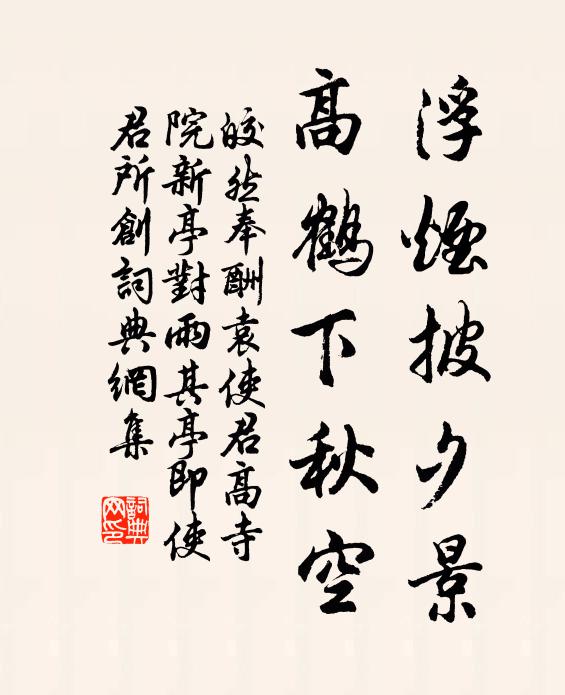 浮煙披夕景
高鶴下秋空
皎然奉酬袁使君高寺
院新亭對雨其亭即使
君所創詞典網集
詞典
网印